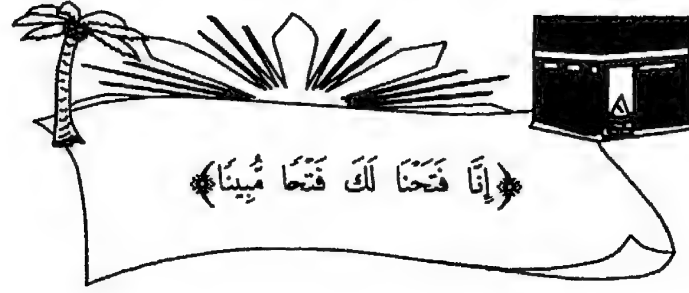 ﴿إِنَّا فَتَحْنَا لَكَ فَتْحًا مُّبِينًا﴾